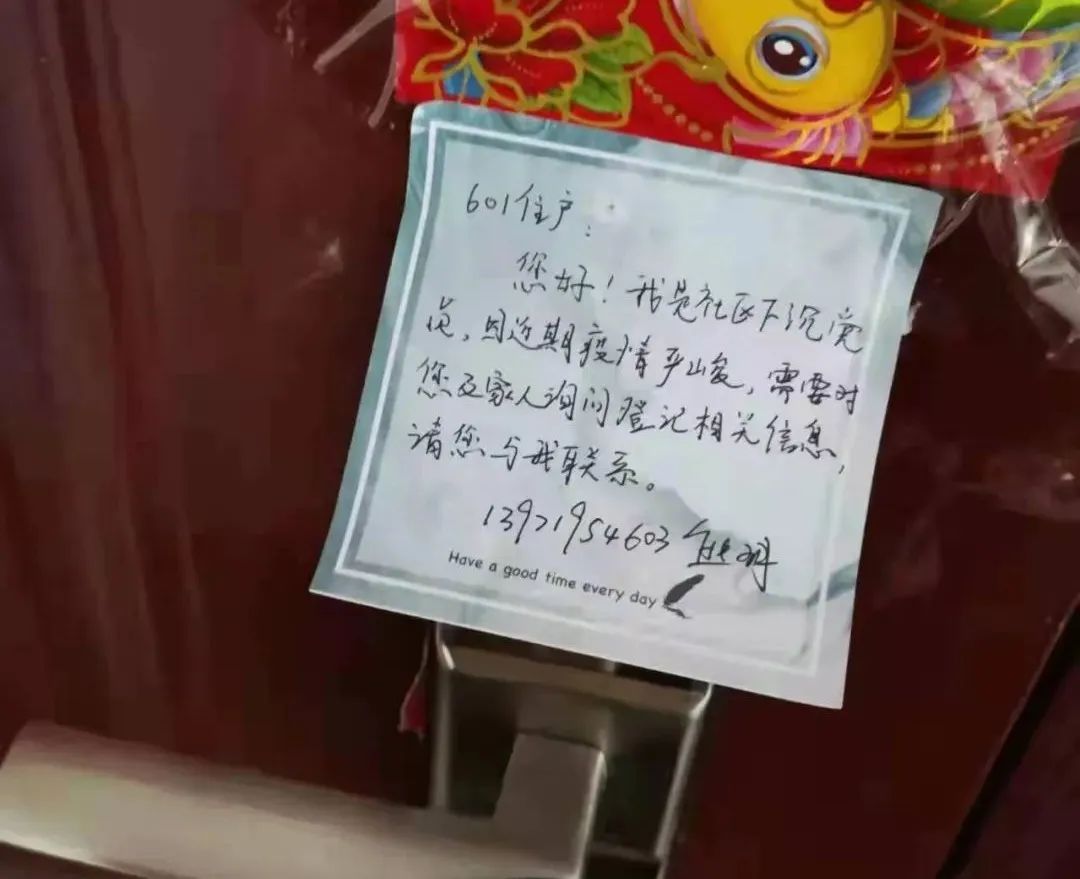 601住户：
您好！我是社区下沉党
员，因近期疫情严峻，需要对
您及家人询问登记相关信息，
请您与我联系。
13971954603 熊
Have a good time every day